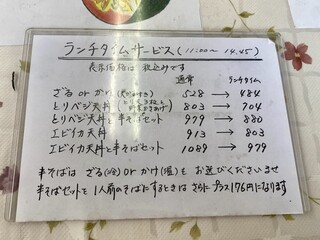 ランチタイムサービス(11:00～14.45)
表示価格は税込みです
通常 ランチタイム
ざる or かけ 528 → 484
とりベジ天丼 803 → 704
とりベジ天丼と半そばセット 979 → 880
エビイカ天丼 913 → 803
エビイカ天丼と半そばセット 1089 → 979
半そばは ざる(冷) or かけ(温) を お選びくださいませ
半そばセットを1人前のそばにするときは さらにプラス176円になります